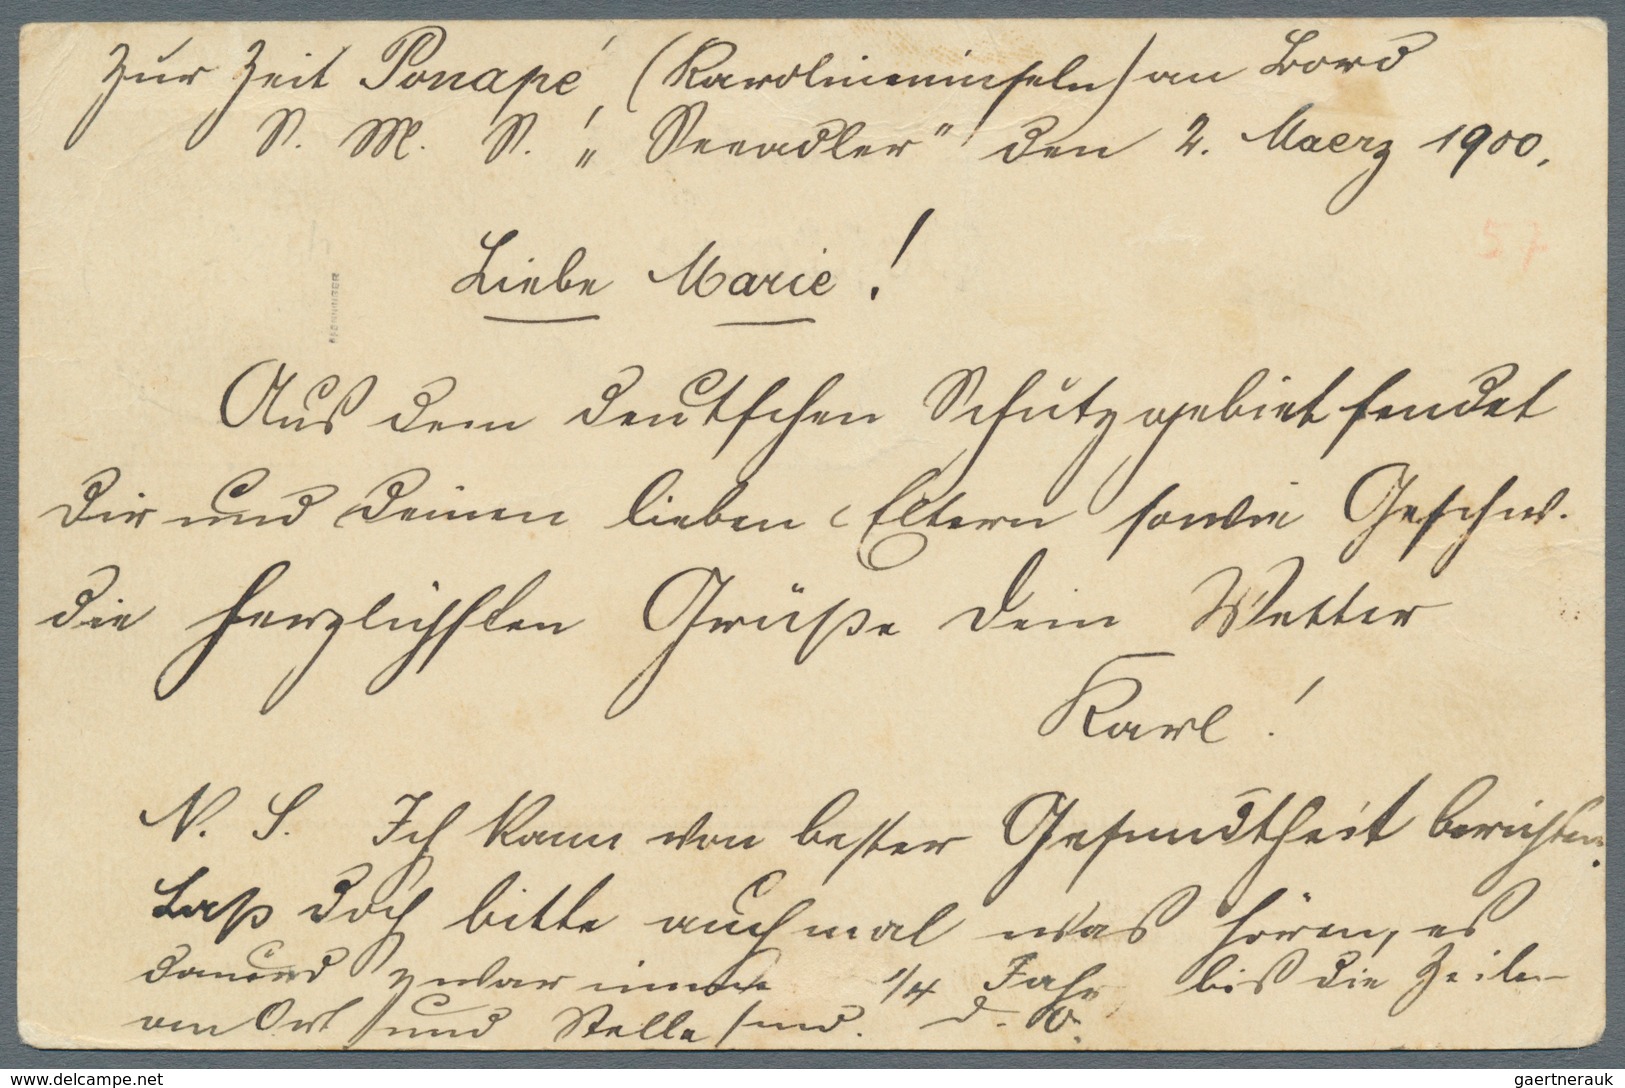 Zur Zeit Ponapé, (Karolineninseln) an Bord
S. M. S. „Seeadler" den 2. Maerz 1900.
57
Liebe Marie!
Aus dem deutschen Schutzgebiet sendet
Dir und Deinen lieben Eltern sowie Geschw.
die herzlichsten Grüße Dein Vetter
Karl!
N. S. Ich kann von bester Gesundtheit berichten.
Laß doch bitte auch mal was hören, es
dauerd zwar immer 1/4 Jahr bis die Zeilen
am Ort und Stelle sind. D. O.
delcampe.net
gaertnerauk